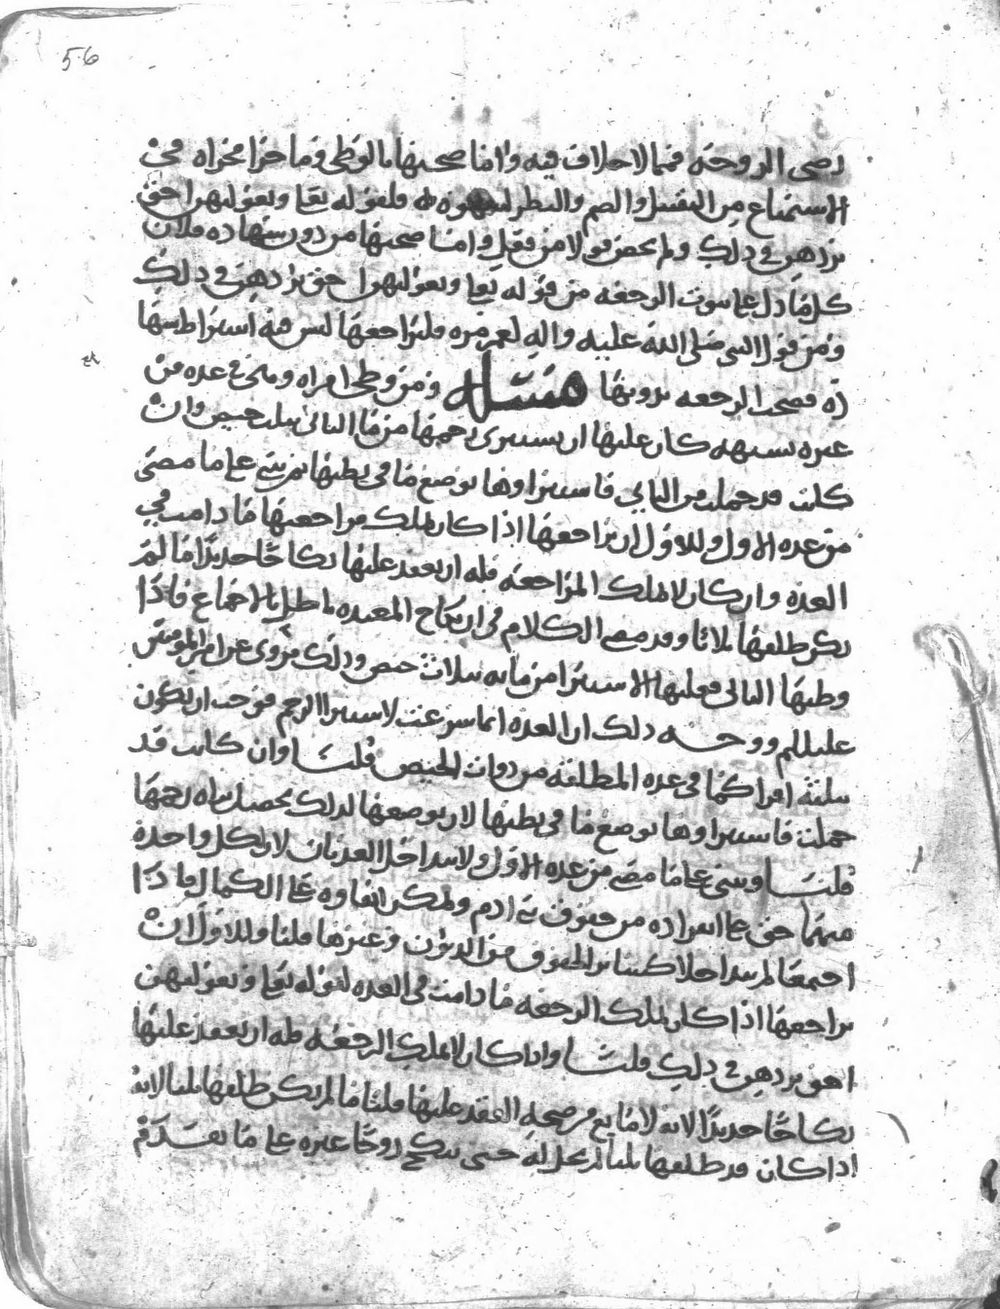 56
رضى الزوجة فمما لا خلاف فيه واما صحتها بالوطى وما جرا مجراه من
الاستمتاع من التقبيل والضم والنظر لشهوة فلقوله تعا وبعولتهن احق
بردهن في ذلك ولم يخص قولا من فعل واما صحتها من دون شهاده فلان
كلما دل على ثبوت الرجعه من قوله تعا وبعولتهن احق بردهن في ذلك
ومن قول النبي صلى الله عليه واله لعمر مره فليراجعها ليس فيه اشتراط الشها
دة فصحت الرجعه بدونها مسئله ومن وطى امراه وهي في عده من
غيره بشبهه كان عليها ان تستبرى رحمها من ما الثاني بثلث حيض وان
كانت قد حملت من الثاني فاستبراوها بوضع ما في بطنها ثم تبنى على ما مضى
من عده الاول وللاول ان يراجعها اذا كان يملك مراجعتها ما دامت في
العدة وان كان لا يملك المراجعه فله ان يعقد عليها نكاحا جديدا ما لم
يكن طلقها ثلاثا وقد مضى الكلام في ان نكاح المعتده باطل بالاجماع فاذا
وطيها الثاني فعليها الاستبرا من مائه بثلاث حيض وذلك مروى عن امير المومنين
عليلم ووجه ذلك ان العده انما شرعت لاستبرا الرحم فوجب ان يكون
ثلثة اقرا كما في عدة المطلقه من ذوات الحيض قلنا وان كانت قد
حملت فاستبراوها بوضع ما في بطنها لان بوضعها لذلك يحصل براه رحمها
قلنا وتبنى على ما مضى من عده الاول ولا يتداخل العدتان لان لكل واحدة
منهما حق على انفراده من حقوق بني ادم ويمكن ايفاوه على الكمال فاذا
اجتمعا لم يتداخلا كسائر الحقوق من الديون وغيرها قلنا وللاول ان
يراجعها اذا كان يملك الرجعه ما دامت في العده لقوله تعا وبعولتهن
احق بردهن في ذلك قلنا واذا كان لا يملك الرجعه فله ان يعقد عليها
نكاحا جديدا لانه لا مانع من صحة العقد عليها قلنا ما لم يكن طلقها ثلثا لانه
اذا كان قد طلقها ثلثا لم تحل له حتى تنكح زوجا غيره على ما تقدم